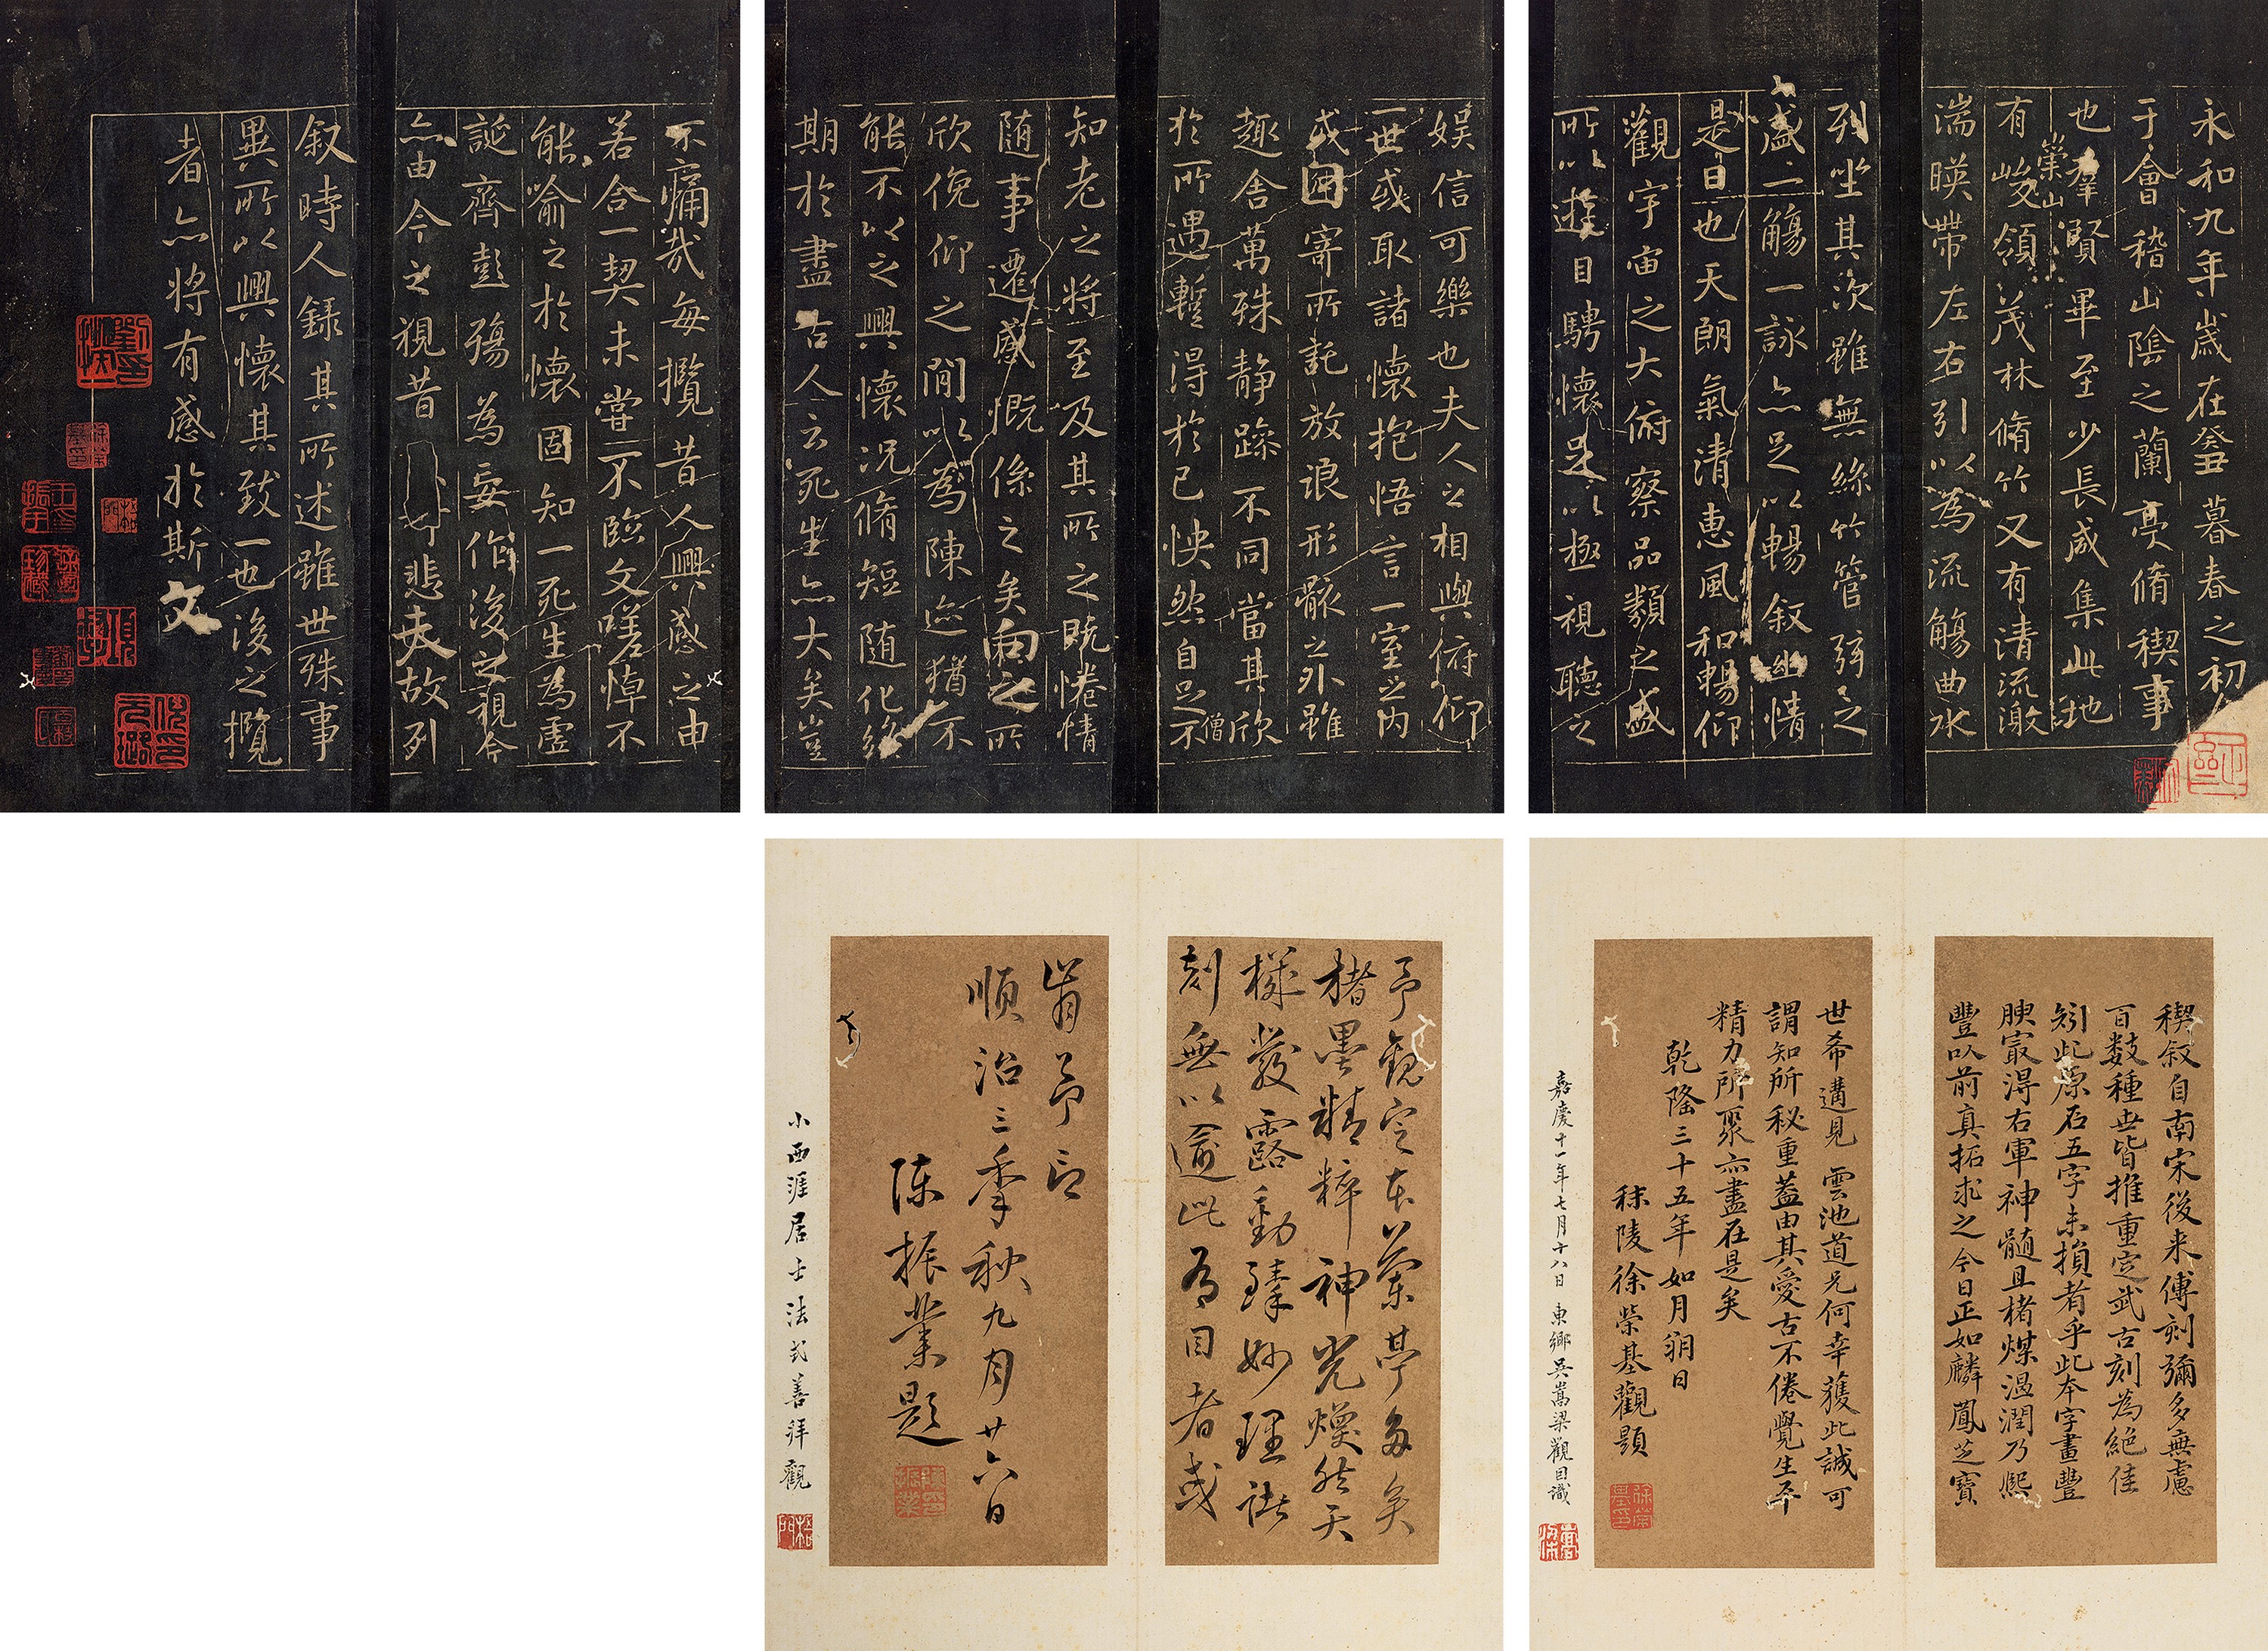 永和九年歲在癸丑暮春之初
于會稽山陰之蘭亭脩稧事
也羣賢畢至少長咸集此地
崇山
有峻領茂林脩竹又有清流激
湍暎帶左右引以為流觴曲水
列坐其次雖無絲竹管弦之
盛一觴一詠亦足以暢敘幽情
是日也天朗氣清惠風和暢仰
觀宇宙之大俯察品類之盛
所以遊目騁懷足以極視聽之
娛信可樂也夫人之相與俯仰
一世或取諸懷抱悟言一室之內
或因寄所託放浪形骸之外雖
趣舍萬殊靜躁不同當其欣
僧
於所遇暫得於己怏然自足不
知老之將至及其所之既惓情
隨事遷感慨係之矣向之所
欣俛仰之閒以為陳迹猶不
能不以之興懷況脩短隨化終
期於盡古人云死生亦大矣豈
不痛哉每攬昔人興感之由
若合一契未嘗不臨文嗟悼不
能喻之於懷固知一死生為虛
誕齊彭殤為妄作後之視今
亦由今之視昔悲夫故列
敘時人錄其所述雖世殊事
異所以興懷其致一也後之攬
者亦將有感於斯文
稧敘自南宋後来傳刻彌多無慮
百数種世皆推重定武古刻為絕佳
矧此原石五字未損者乎此本字畫豐
腴㝡淂右軍神髓且楮煤温潤乃熙
豐以前真拓求之今日正如麟鳳芝寶
世希遘見雲池道兄何幸獲此誠可
謂知所秘重蓋由其愛古不倦覺生平
精力所聚亦盡在是矣
乾隆三十五年如月朔日
秣陵徐榮基觀題
嘉慶十一年七月十八日東鄉吳嵩梁觀因識
予觀定本蘭亭多矣
楮墨精粹神光燦然天
機發露動臻妙理諸
刻無以逾此有目者或
肯予言
順治三季秋九月廿六日
陳振業題
小西涯居士法式善拜觀